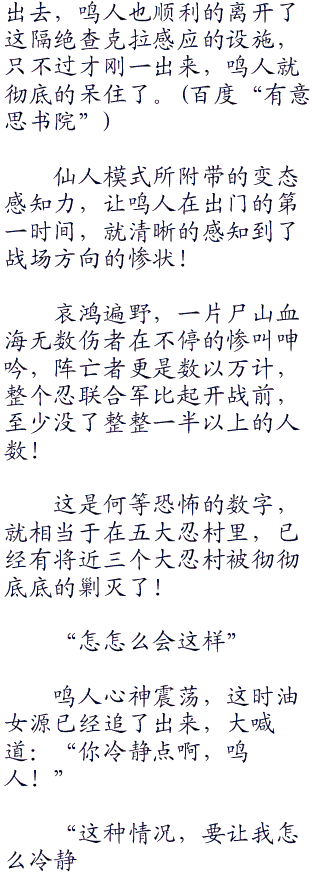 出去，鸣人也顺利的离开了
这隔绝查克拉感应的设施，
只不过才刚一出来，鸣人就
彻底的呆住了。(百度“有意
思书院”)
仙人模式所附带的变态
感知力，让鸣人在出门的第
一时间，就清晰的感知到了
战场方向的惨状！
哀鸿遍野，一片尸山血
海无数伤者在不停的惨叫呻
吟，阵亡者更是数以万计，
整个忍联合军比起开战前，
至少没了整整一半以上的人
数！
这是何等恐怖的数字，
就相当于在五大忍村里，已
经有将近三个大忍村被彻彻
底底的剿灭了！
“怎怎么会这样”
鸣人心神震荡，这时油
女源已经追了出来，大喊
道：“你冷静点啊，鸣
人！”
“这种情况，要让我怎
么冷静